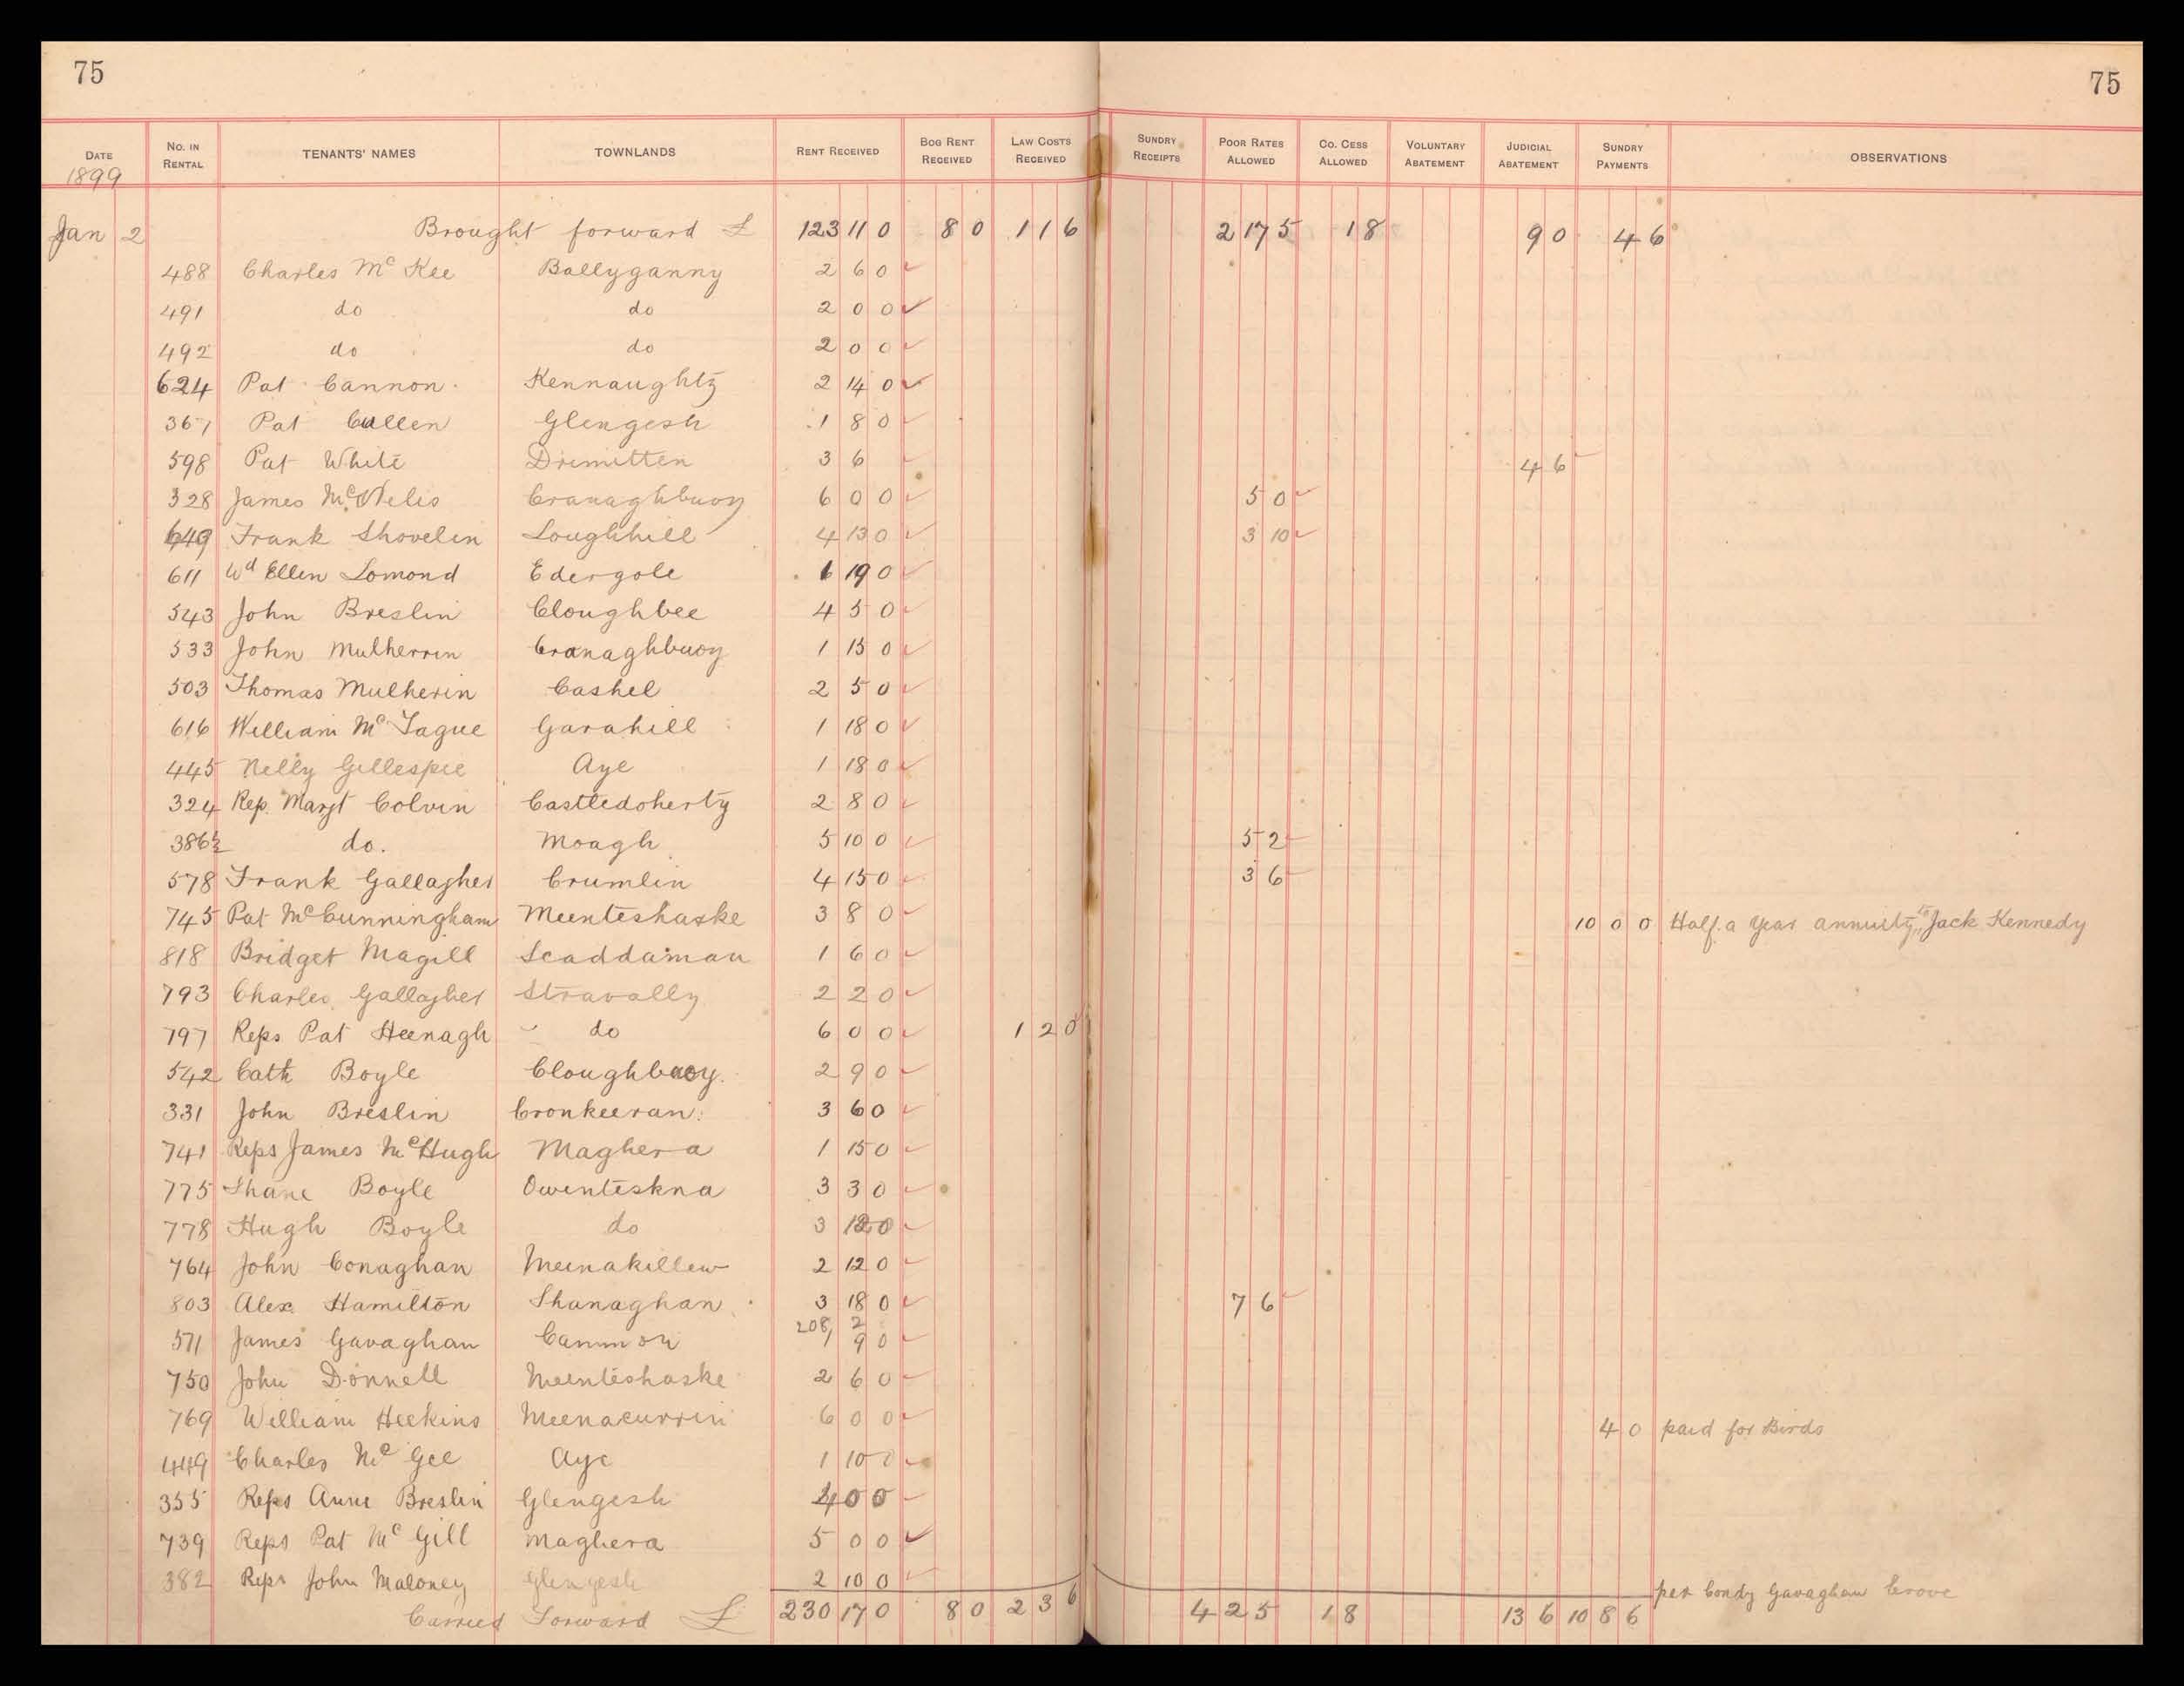 75 75
DATE No. IN RENTAL TENANTS' NAMES TOWNLANDS RENT RECEIVED BOG RENT RECEIVED LAW COSTS RECEIVED SUNDRY RECEIPTS POOR RATES ALLOWED Co. CESS ALLOWED VOLUNTARY ABATEMENT JUDICIAL ABATEMENT SUNDRY PAYMENTS OBSERVATIONS
1899
Jan 2 Brought forward £ 123 11 0 8 0 1 1 6 2 17 5 1 8 9 0 4 6
488 Charles Mc Kee Ballyganny 2 6 0
491 do do 2 0 0
492 do do 2 0 0
624 Pat Cannon Kennaughty 2 14 0
367 Pat Cullen Glengesh 1 8 0
598 Pat White Drimitten 3 6 4 6
328 James McNelis Cranaghbuoy 6 0 0 5 0
649 Frank Shovelin Loughhill 4 13 0 3 10
611 Wd Ellen Lomond Edergole 1 19 0
543 John Breslin Cloughbee 4 5 0
533 John Mulherrin Cranaghbuoy 1 15 0
503 Thomas Mulherin Cashel 2 5 0
616 William Mc Tague Garahill 1 18 0
445 Nelly Gillespie Aye 1 18 0
324 Rep. Margt Colvin Castledoherty 2 8 0
386½ do. Moagh 5 10 0 5 2
578 Frank Gallagher Crumlin 4 15 0 3 6
745 Pat McCunningham Meenteshaske 3 8 0 10 0 0 Half a Year annuity to Jack Kennedy
818 Bridget Magill Scaddaman 1 6 0
793 Charles Gallagher Stravally 2 2 0
797 Reps Pat Heenagh do 6 0 0 1 2 0
542 Cath Boyle Cloughbuoy. 2 9 0
331 John Breslin Cronkeeran 3 6 0
741 Reps James McHugh Maghera 1 15 0
775 Shane Boyle Owenteskna 3 3 0
778 Hugh Boyle do 3 12 0
764 John Conaghan Meenakillew 2 12 0
803 Alex Hamilton Shanaghan 3 18 0 7 6
208 2
571 James Gavaghan Cammon 1 9 0
750 John Donnell Meenteshaske 2 6 0
769 William Heekins Meenacurrin 6 0 0 4 0 paid for Birds
449 Charles Mc Gee Aye 1 10 0
355 Reps Anne Breslin Glengesh 4 0 0
739 Reps Pat Mc Gill Maghera 5 0 0
382 Reps John Maloney Glengesh 2 10 0 per Condy Gavaghan Crove
Carried Forward £ 230 17 0 8 0 2 3 6 4 2 5 1 8 13 6 10 8 6